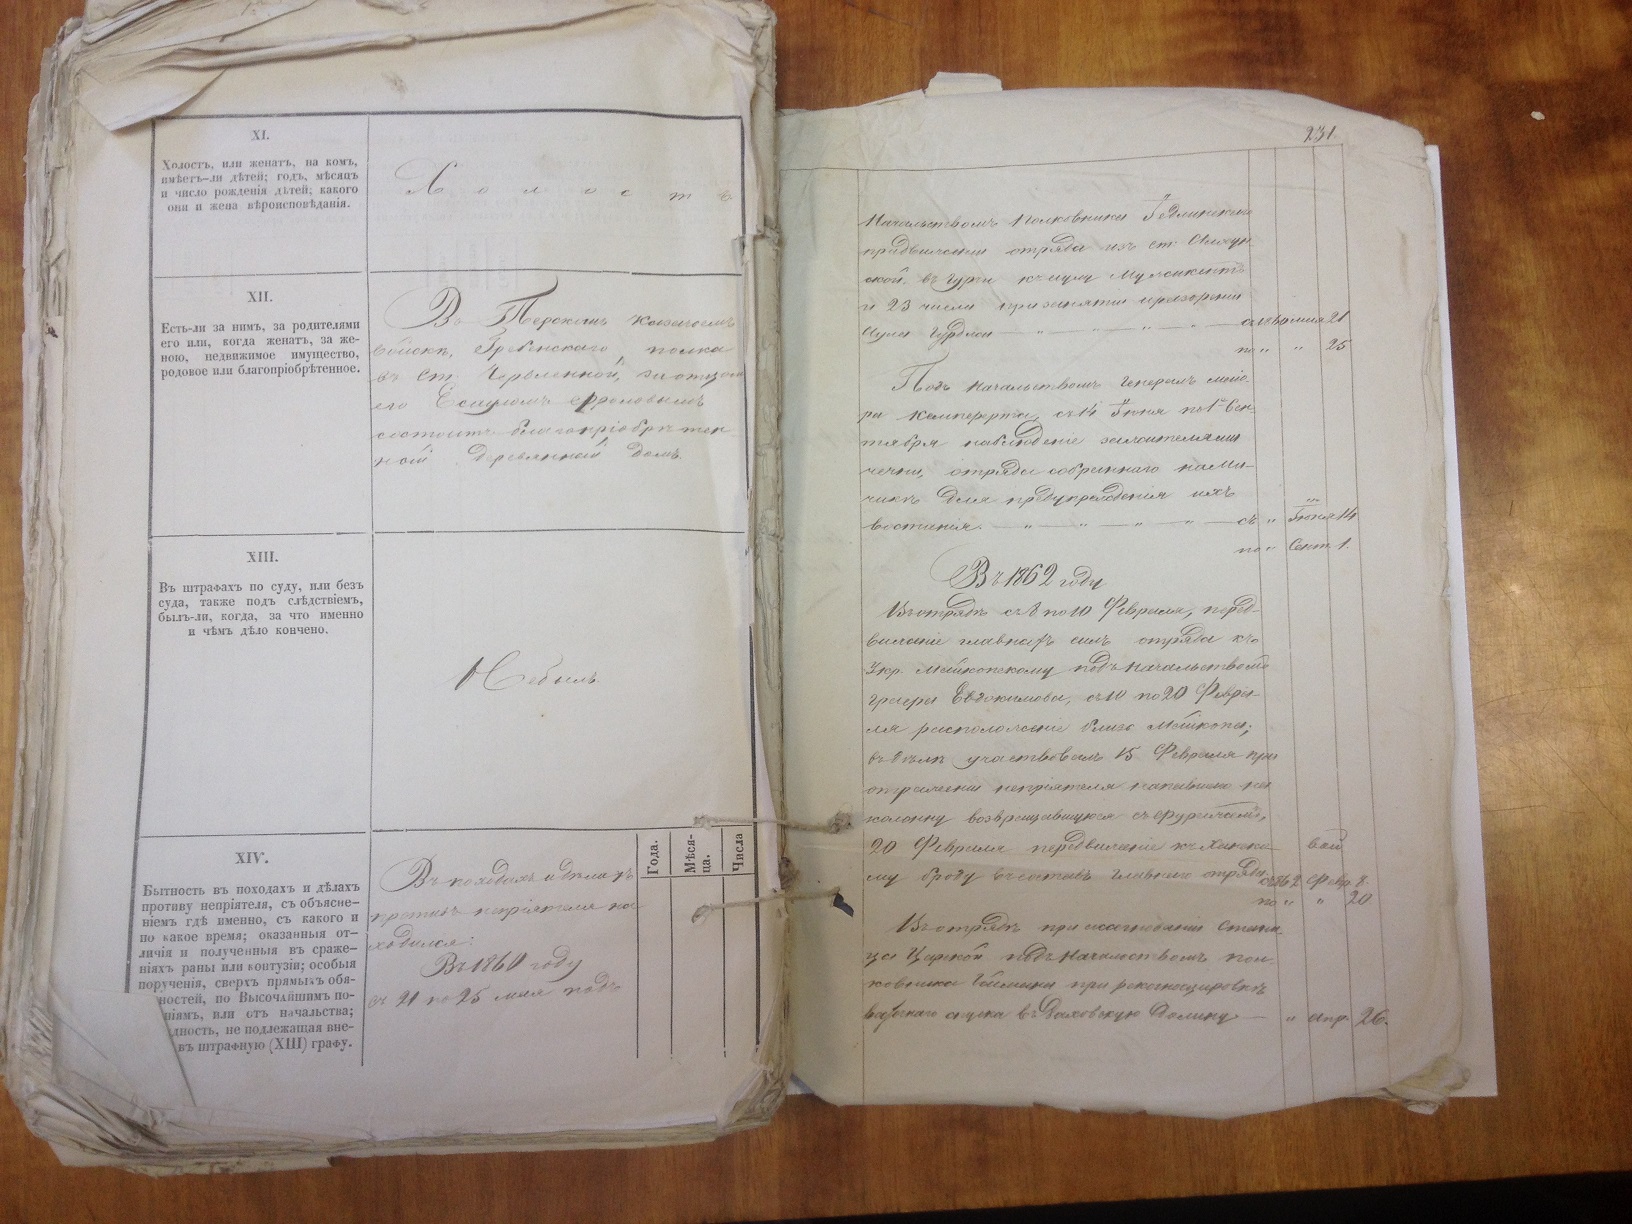 XI.
Холостъ, или женатъ, на комъ,
имѣетъ-ли дѣтей; годъ, мѣсяцъ
и число рожденія дѣтей; какого
они и жена вѣроисповѣданія.
Холостъ
XII.
Есть-ли за нимъ, за родителями
его или, когда женатъ, за же-
ною, недвижимое имущество,
родовое или благопріобрѣтенное.
Въ Терскомъ казачьемъ
войскѣ, Гребенскаго полка
въ ст. Червленной, за отцомъ
его Есауломъ Фроловымъ
состоитъ благопріобрѣтен
ной деревянный домъ.
XIII.
Въ штрафахъ по суду, или безъ
суда, также подъ слѣдствіемъ,
былъ-ли, когда, за что именно
и чѣмъ дѣло кончено.
Небылъ
XIV.
Бытность въ походахъ и дѣлахъ
противу непріятеля, съ объясне-
ніемъ гдѣ именно, съ какого и
по какое время; оказанныя от-
личія и полученныя въ сраже-
ніяхъ раны или контузіи; особыя
порученія, сверхъ прямыхъ обя-
ностей, по Высочайшимъ по-
ніямъ, или отъ начальства;
дность, не подлежащая вне-
въ штрафную (XIII) графу.
Года.
Мѣся-
ца.
Числа
Въ походахъ и дѣлахъ
противъ непріятеля на
ходился:
Въ 1860 году
съ 21 по 25 мая подъ
231
Начальствомъ Полковника
отряда изъ ст.
къ аулу
и 23 числа при занятіи
Аула
мая 21
по " " 25
Подъ начальствомъ Генералъ маіо-
ра Кемпферта, съ 14 Іюня по 1е Сен
тября наблюденіе за жителями
чечни, отряда собраннаго на Ми-
чикѣ для предупрежденія ихъ
востанія. — " — " — " — " — съ " Іюня 14
по " Сент. 1.
Въ 1862 году
Въ отрядѣ съ 8 по 10 Февраля, перед-
вижение главныхъ силъ отряда къ
Укр. Майкопскому подъ начальствомъ
графа Евдокимова, съ 10 по 20 Февра-
ля расположеніе близъ Майкопа,
въ дѣлѣ участвовалъ 15 Февраля при
отраженіи непріятеля напавшаго на
колонну возвращавшуюся съ фуражемъ,
20 Февраля передвиженіе къ Ханска-
му броду въ составѣ главнаго отряда
съ 1862 Февр. 8.
по " " 20
Въ отрядѣ при
цы Царской подъ начальствомъ пол-
ковника Геймана при рекогносцировкѣ
спуска въ Даховскую долину — " апр. 26.